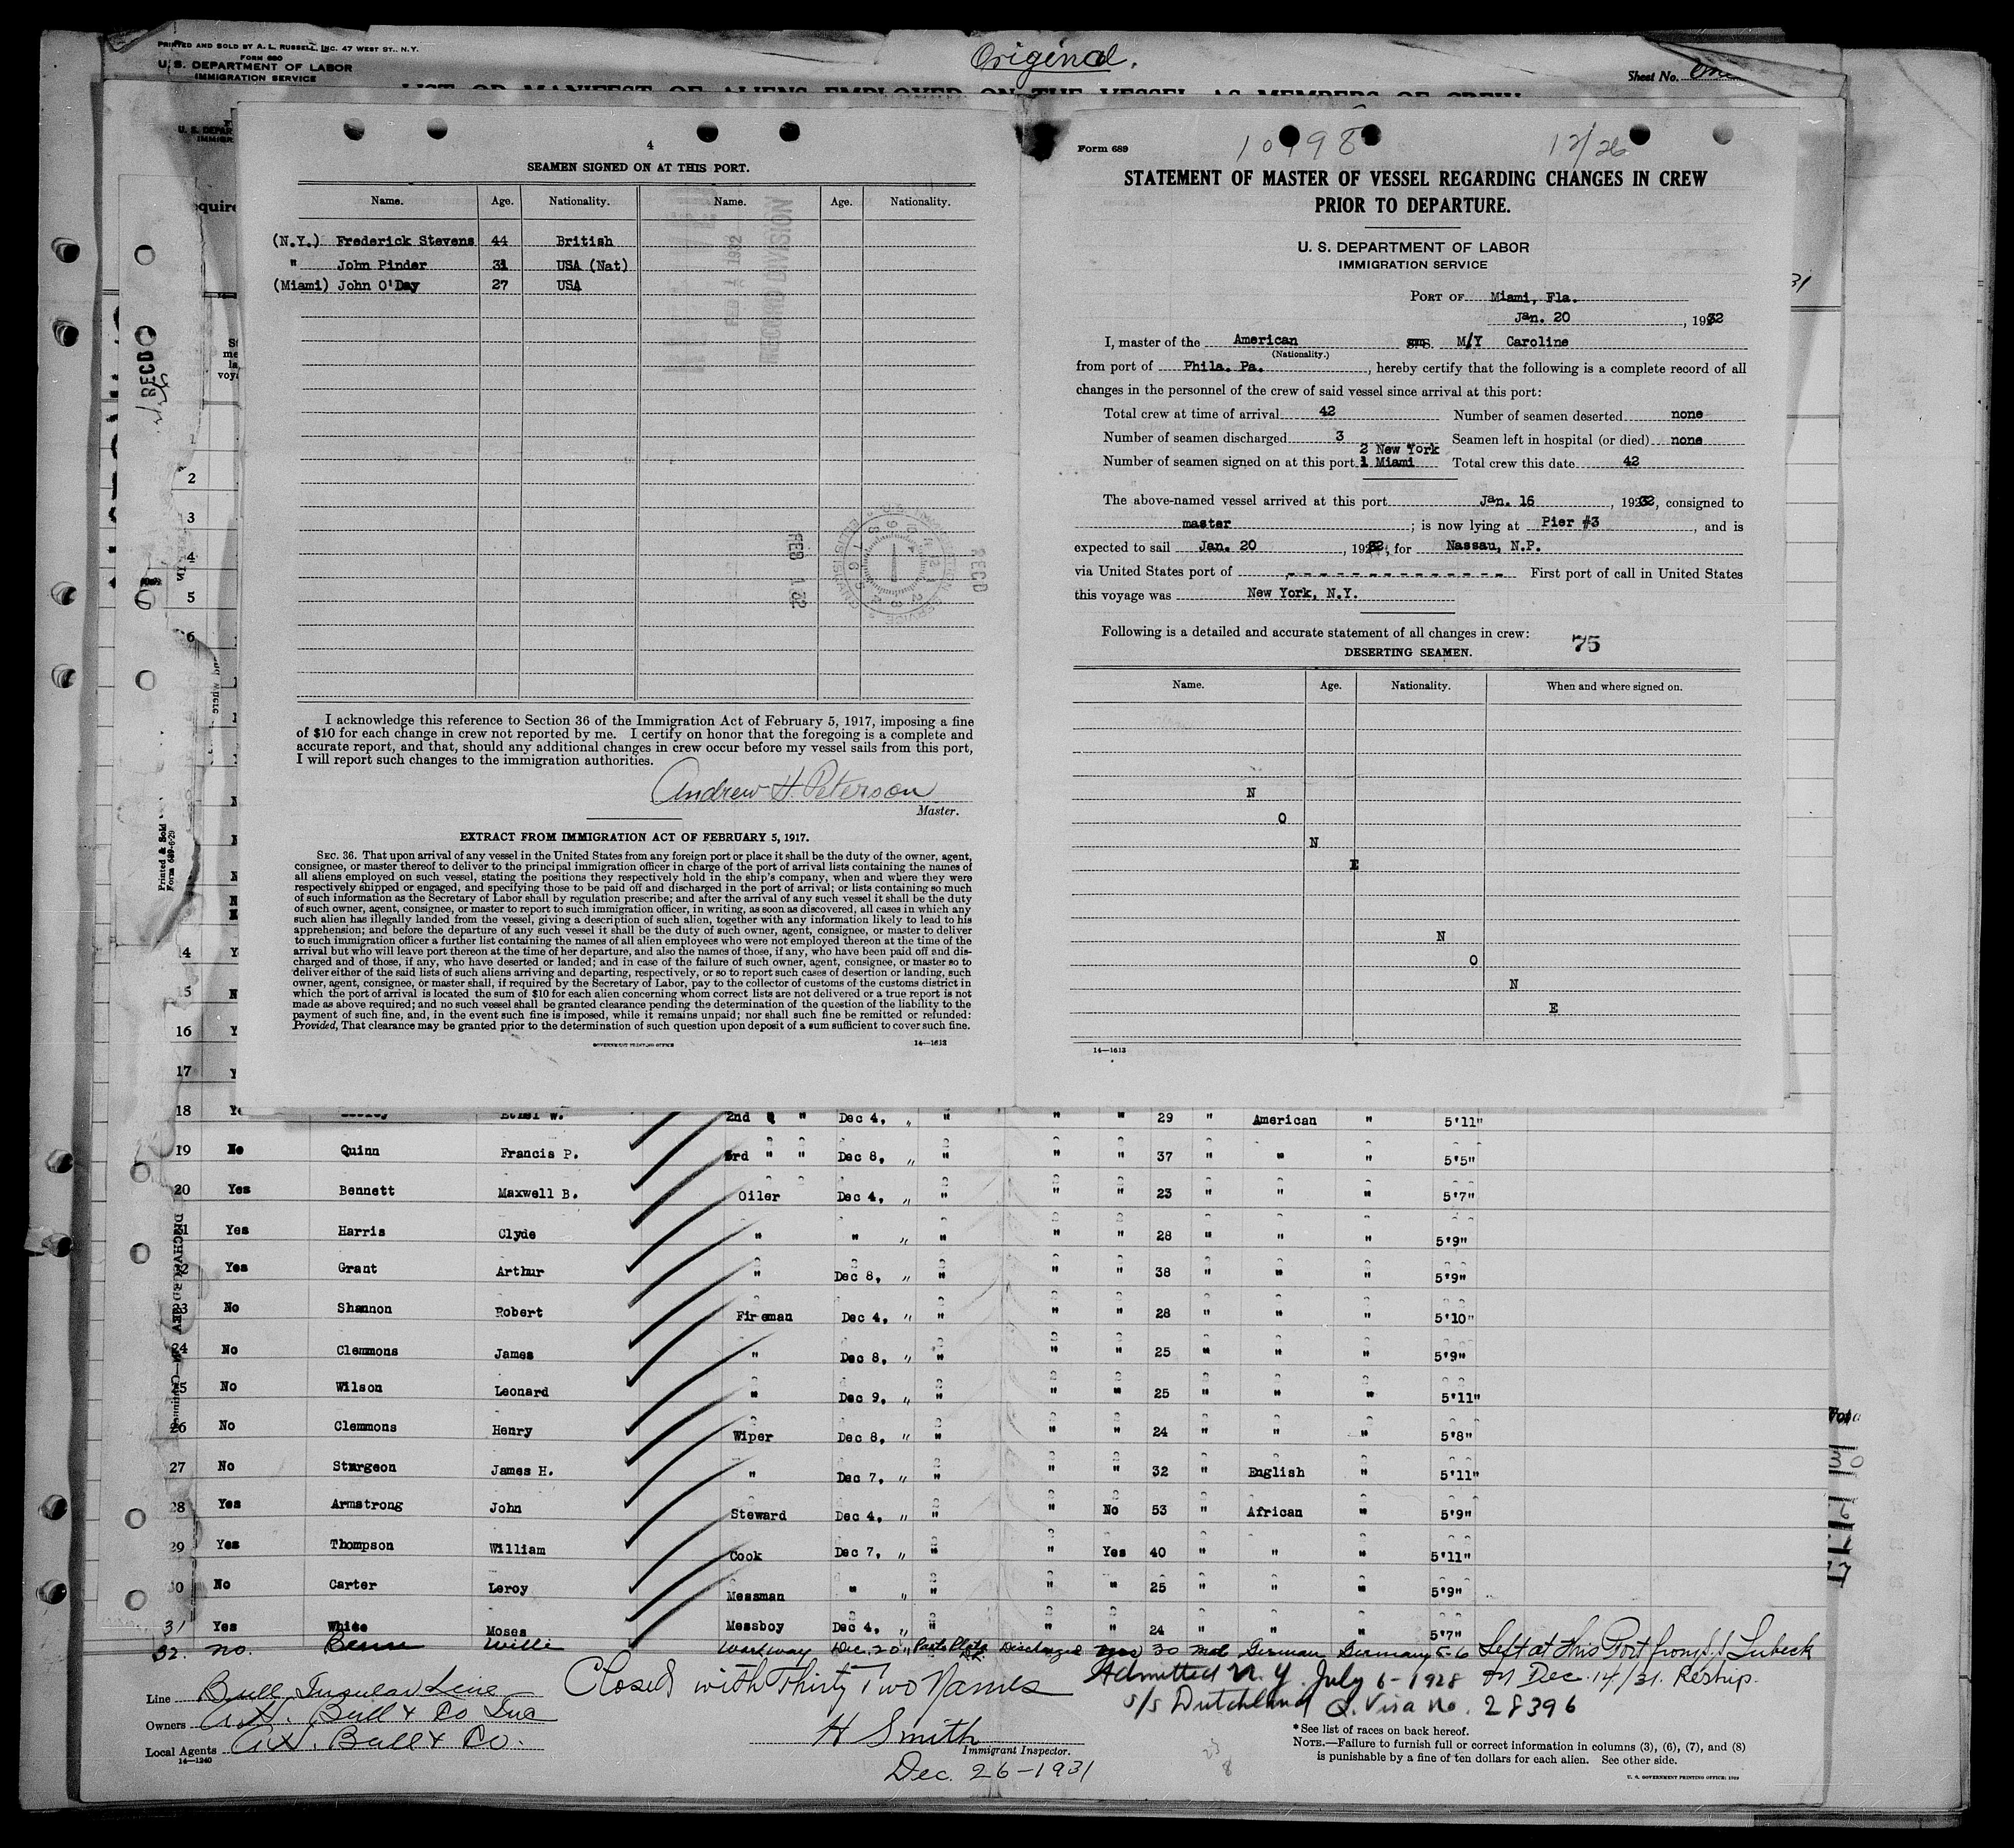 PRINTED AND SOLD BY A. L. RUSSELL, INC. 47 WEST ST., N.Y.
FORM 680
U. S. DEPARTMENT OF LABOR
IMMIGRATION SERVICE
Original.
Sheet No.
LIST OR MANIFEST OF ALIENS EMPLOYED ON THE VESSEL AS MEMBERS OF CREW
4
SEAMEN SIGNED ON AT THIS PORT.
Name. Age. Nationality. Name. Age. Nationality.
(N.Y.) Frederick Stevens 44 British
" John Pinder 31 USA (Nat)
(Miami) John O'Day 27 USA
RECORD DIVISION
FEB 1 1932
FEB 1 32
RECD
I acknowledge this reference to Section 36 of the Immigration Act of February 5, 1917, imposing a fine
of $10 for each change in crew not reported by me. I certify on honor that the foregoing is a complete and
accurate report, and that, should any additional changes in crew occur before my vessel sails from this port,
I will report such changes to the immigration authorities.
Andrew H. Peterson
Master.
EXTRACT FROM IMMIGRATION ACT OF FEBRUARY 5, 1917.
SEC. 36. That upon arrival of any vessel in the United States from any foreign port or place it shall be the duty of the owner, agent,
consignee, or master thereof to deliver to the principal immigration officer in charge of the port of arrival lists containing the names of
all aliens employed on such vessel, stating the positions they respectively hold in the ship's company, when and where they were
respectively shipped or engaged, and specifying those to be paid off and discharged in the port of arrival; or lists containing so much
of such information as the Secretary of Labor shall by regulation prescribe; and after the arrival of any such vessel it shall be the duty
of such owner, agent, consignee, or master to report to such immigration officer, in writing, as soon as discovered, all cases in which any
such alien has illegally landed from the vessel, giving a description of such alien, together with any information likely to lead to his
apprehension; and before the departure of any such vessel it shall be the duty of such owner, agent, consignee, or master to deliver
to such immigration officer a further list containing the names of all alien employees who were not employed thereon at the time of the
arrival but who will leave port thereon at the time of her departure, and also the names of those, if any, who have been paid off and dis-
charged and of those, if any, who have deserted or landed; and in case of the failure of such owner, agent, consignee, or master so to
deliver either of the said lists of such aliens arriving and departing, respectively, or so to report such cases of desertion or landing, such
owner, agent, consignee, or master shall, if required by the Secretary of Labor, pay to the collector of customs of the customs district in
which the port of arrival is located the sum of $10 for each alien concerning whom correct lists are not delivered or a true report is not
made as above required; and no such vessel shall be granted clearance pending the determination of the question of the liability to the
payment of such fine, and, in the event such fine is imposed, while it remains unpaid; nor shall such fine be remitted or refunded:
Provided, That clearance may be granted prior to the determination of such question upon deposit of a sum sufficient to cover such fine.
GOVERNMENT PRINTING OFFICE 14—1613
Form 689 12/26
STATEMENT OF MASTER OF VESSEL REGARDING CHANGES IN CREW
PRIOR TO DEPARTURE.
U. S. DEPARTMENT OF LABOR
IMMIGRATION SERVICE
PORT OF Miami, Fla.
Jan. 20, 1932
I, master of the American S.S. M/Y Caroline
(Nationality.)
from port of Phila. Pa., hereby certify that the following is a complete record of all
changes in the personnel of the crew of said vessel since arrival at this port:
Total crew at time of arrival 42 Number of seamen deserted none
Number of seamen discharged 3 Seamen left in hospital (or died) none
2 New York
Number of seamen signed on at this port 1 Miami Total crew this date 42
The above-named vessel arrived at this port Jan. 16, 1932, consigned to
master; is now lying at Pier #3, and is
expected to sail Jan. 20, 1932, for Nassau, N.P.
via United States port of - - - - - - - - - - - - - - First port of call in United States
this voyage was New York, N.Y.
Following is a detailed and accurate statement of all changes in crew:
75
DESERTING SEAMEN.
Name. Age. Nationality. When and where signed on.
N
O
N
E
N
O
N
E
14—1613
18 2nd " " Dec 4, " " " " 29 " American " 5'11"
19 No Quinn Francis P. 3rd " " Dec 8, " " " " 37 " " " 5'5"
20 Yes Bennett Maxwell B. Oiler Dec 4, " " " " 23 " " " 5'7"
21 Yes Harris Clyde " " " " " " 28 " " " 5'9"
22 Yes Grant Arthur " Dec 8, " " " " 38 " " " 5'9"
23 No Shannon Robert Fireman Dec 4, " " " " 28 " " " 5'10"
24 No Clemmons James " Dec 8, " " " " 25 " " " 5'9"
25 No Wilson Leonard " Dec 9, " " " " 25 " " " 5'11"
26 No Clemmons Henry Wiper Dec 8, " " " " 24 " " " 5'8"
27 No Sturgeon James H. " Dec 7, " " " " 32 " English " 5'11"
28 Yes Armstrong John Steward Dec 4, " " " No 53 " African " 5'9"
29 Yes Thompson William Cook Dec 7, " " " Yes 40 " " " 5'11"
30 No Carter Leroy Messman " " " " " 25 " " " 5'9"
31 Yes White Moses Messboy Dec 4, " " " " 24 " " " 5'7"
32. no. Willi Workway Dec. 20 " Discharged yes 30 Mal German Germany 5-6 Left at this Port from S.S. Lubeck
Closed with Thirty Two Names Admitted N.Y. July 6-1928 on Dec. 14/31. Reship.
S/S Dutchland Q. Visa No. 28396
Line Bull Insular Line
Owners A.H. Bull & Co Inc
Local Agents A.H. Bull & Co.
14—1240
H Smith
Immigrant Inspector.
Dec. 26-1931
* See list of races on back hereof.
NOTE.—Failure to furnish full or correct information in columns (3), (6), (7), and (8)
is punishable by a fine of ten dollars for each alien. See other side.
U. S. GOVERNMENT PRINTING OFFICE: 1929